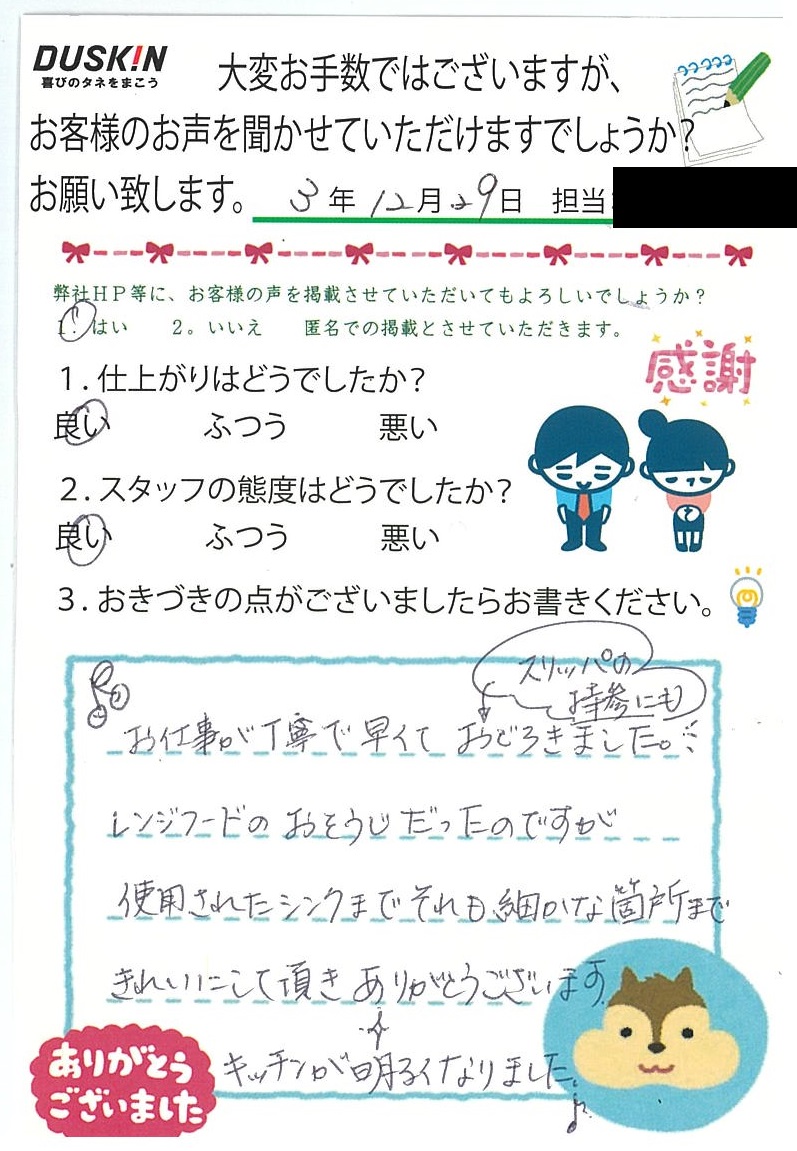 DUSKIN
喜びのタネをまこう
大変お手数ではございますが、
お客様のお声を聞かせていただけますでしょうか?
お願い致します。 3年12月29日 担当
弊社HP等に、お客様の声を掲載させていただいてもよろしいでしょうか?
1.はい 2。いいえ 匿名での掲載とさせていただきます。
感謝
1.仕上がりはどうでしたか?
良い ふつう 悪い
2.スタッフの態度はどうでしたか?
良い ふつう 悪い
3.おきづきの点がございましたらお書きください。
スリッパの
持参にも
お仕事が丁寧で早くて おどろきました。
レンジフードの おそうじだったのですが
使用されたシンクまでそれも細かな箇所まで
きれいにして頂き ありがとうございます
キッチンが明るくなりました。
ありがとう
ございました